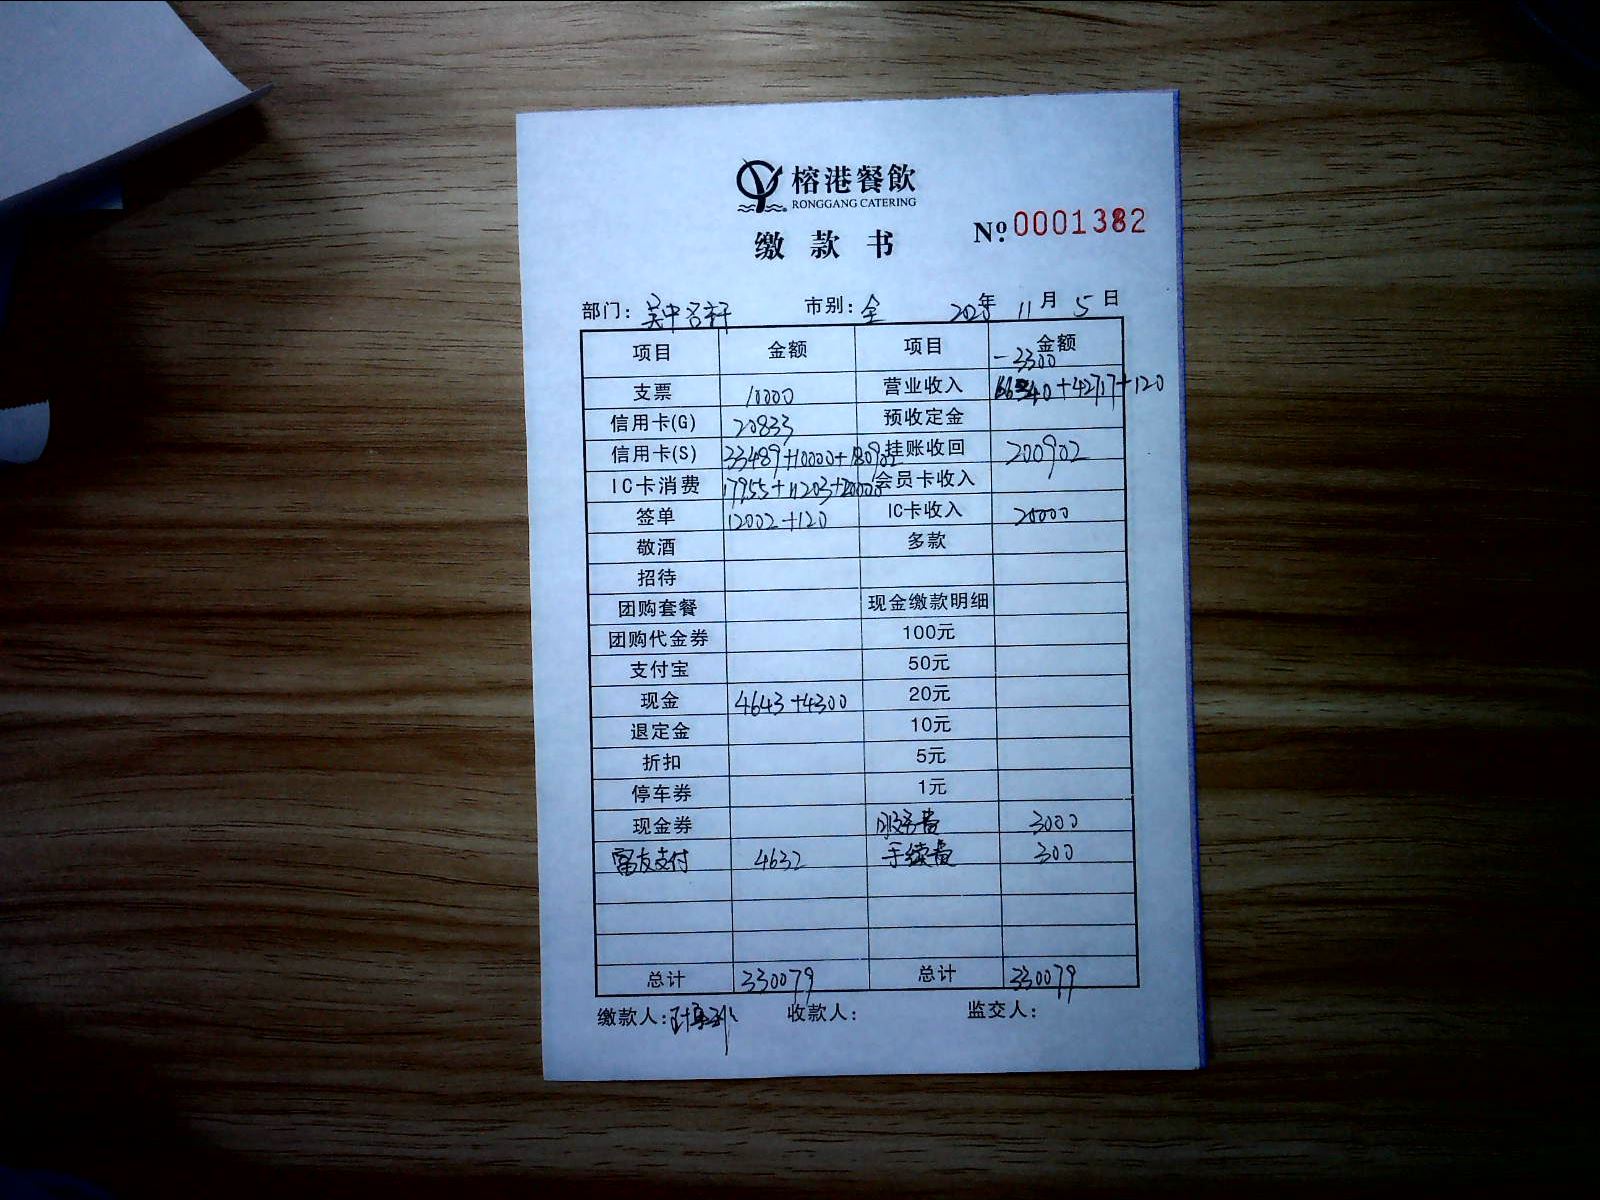 榕港餐飲
RONGGANG CATERING
缴款书 №0001382
部门: 吴中名轩 市别: 全 2025年 11月 5日
项目 金额 项目 金额
-3300
支票 10000 营业收入 +42717+120
信用卡(G) 20833 预收定金
信用卡(S) 23489+10000+180902 挂账收回 200902
IC卡消费 17955+11203+20000 会员卡收入
签单 12002+120 IC卡收入 20000
敬酒 多款
招待
团购套餐 现金缴款明细
团购代金券 100元
支付宝 50元
现金 4643+4300 20元
退定金 10元
折扣 5元
停车券 1元
现金券 服务费 3000
富友支付 4632 手续费 300
总计 330079 总计 330079
缴款人: 收款人: 监交人: